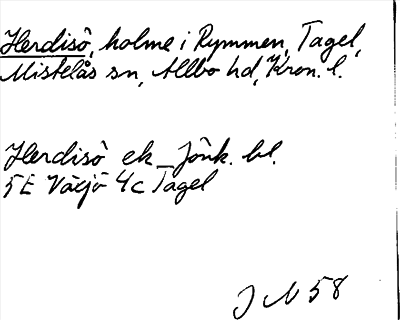 Herdisö, holme i Rymmen, Tagel,
Mistelås sn, Allbo hd, Kron. l.
Herdisö ek. Jönk. bl.
5E Växjö 4c Tagel
J N 58